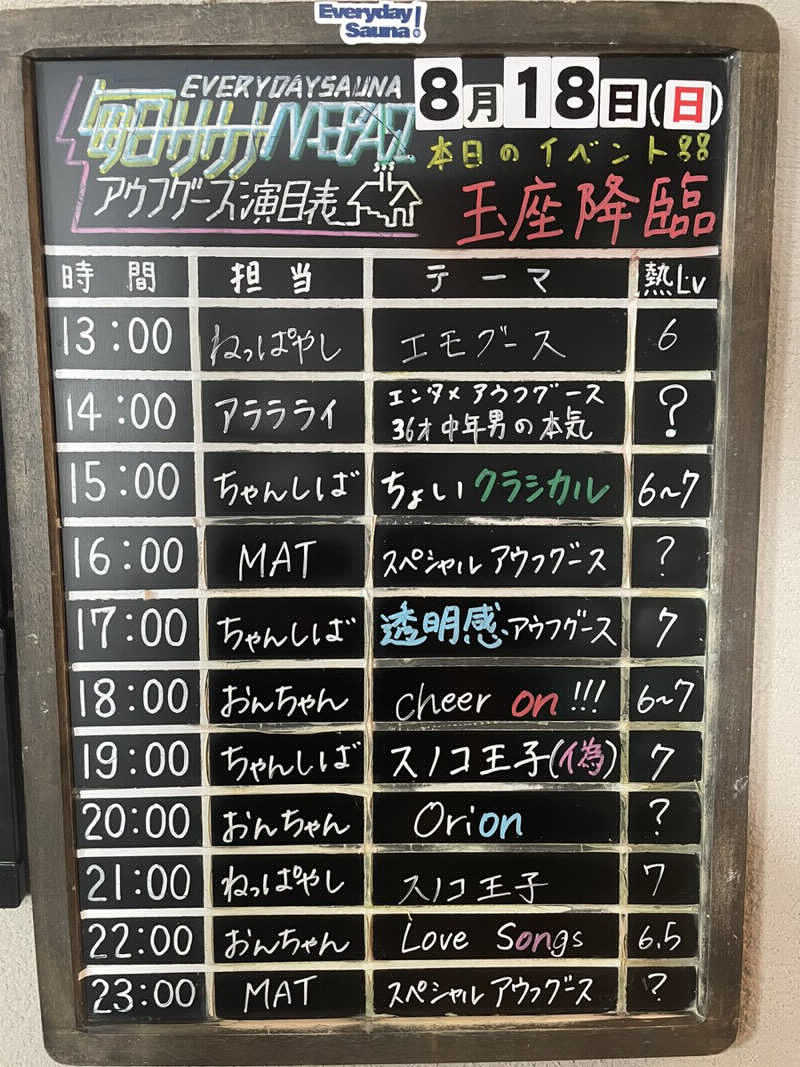 Everyday
Sauna!
EVERYDAYSAUNA
毎日サウナ
8月18日(日)
本日のイベント
アウフグース演目表
玉座降臨
時間 担当 テーマ 熱Lv
13:00 ねっぱやし エモグース 6
14:00 アラララライ エンタメアウフグース ?
36才中年男の本気
15:00 ちゃんしば ちょいクラシカル 6~7
16:00 MAT スペシャルアウフグース ?
17:00 ちゃんしば 透明感アウフグース 7
18:00 おんちゃん cheer on!!! 6~7
19:00 ちゃんしば スノコ王子(偽) 7
20:00 おんちゃん Orion ?
21:00 ねっぱやし スノコ王子 7
22:00 おんちゃん Love Songs 6.5
23:00 MAT スペシャルアウフグース ?